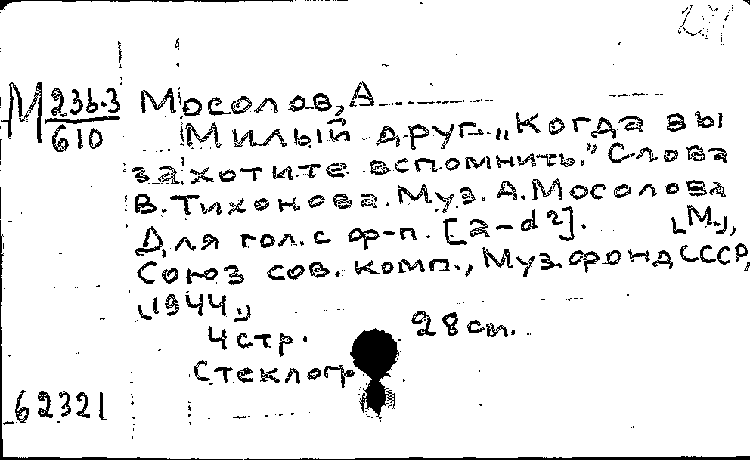 М 236.3 Мосолов, А
610 Милый друг. „Когда вы
захотите вспомнить." Слова
В. Тихонова. Муз. А. Мосолова
Для гол. с ф-п. [a-d2]. [М.],
Союз сов. комп., Муз. фонд СССР,
[1944]
4 стр. 28 cm.
Стеклогр
62321